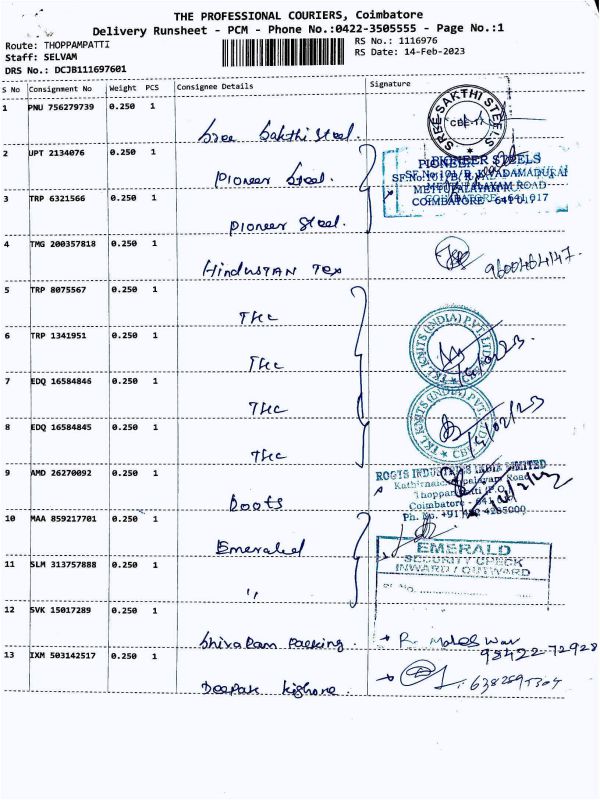 THE PROFESSIONAL COURIERS, Coimbatore
Delivery Runsheet - PCM - Phone No.:0422-3505555 - Page No.:1
Route: THOPPAMPATTI
RS No.: 1116976
Staff: SELVAM
RS Date: 14-Feb-2023
DRS No.: DCJB111697601
S No Consignment No Weight PCS Consignee Details Signature
1 PNU 756279739 0.250 1
Sree Sakthi Steel.
SREE SAKTHI STEELS
CBE-17
2 UPT 2134076 0.250 1
Pioneer Steel.
PIONEER STEELS
SF.No:101/B, KAVADAMADURAI
METTUPALAYAM ROAD
COIMBATORE - 641 017
3 TRP 6321566 0.250 1
Pioneer Steel.
4 TMG 200357818 0.250 1
HINDUSTAN Tex
5 TRP 8075567 0.250 1
TKL
6 TRP 1341951 0.250 1
TKL
TKL KNITS (INDIA) PVT. LTD.
7 EDQ 16584846 0.250 1
TKL
TKL KNITS (INDIA) PVT. LTD.
CBE
15/02/23
8 EDQ 16584845 0.250 1
TKL
9 AMD 26270092 0.250 1
Roots
INDIA LIMITED
Road
Thoppampatti (P.O.)
Coimbatore - 641
10 MAA 859217701 0.250 1
Emerald
EMERALD
SECURITY CHECK
INWARD / OUTWARD
11 SLM 313757888 0.250 1
"
12 SVK 15017289 0.250 1
Shiva Ram Packing.
98422-72928
13 IXM 503142517 0.250 1
Deepak Kishore.